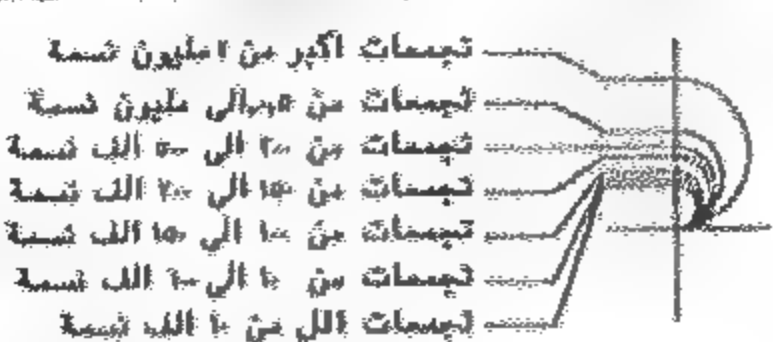 تجمعات أكبر من ١ مليون نسمة
تجمعات من ٥٠٠ الى مليون نسمة
تجمعات من ٢٠٠ الى ٥٠٠ الف نسمة
تجمعات من ١٥٠ الى ٢٠٠ الف نسمة
تجمعات من ١٠٠ الى ١٥٠ الف نسمة
تجمعات من ١٠ الى ١٠٠ الف نسمة
تجمعات اقل من ١٠ الف نسمة